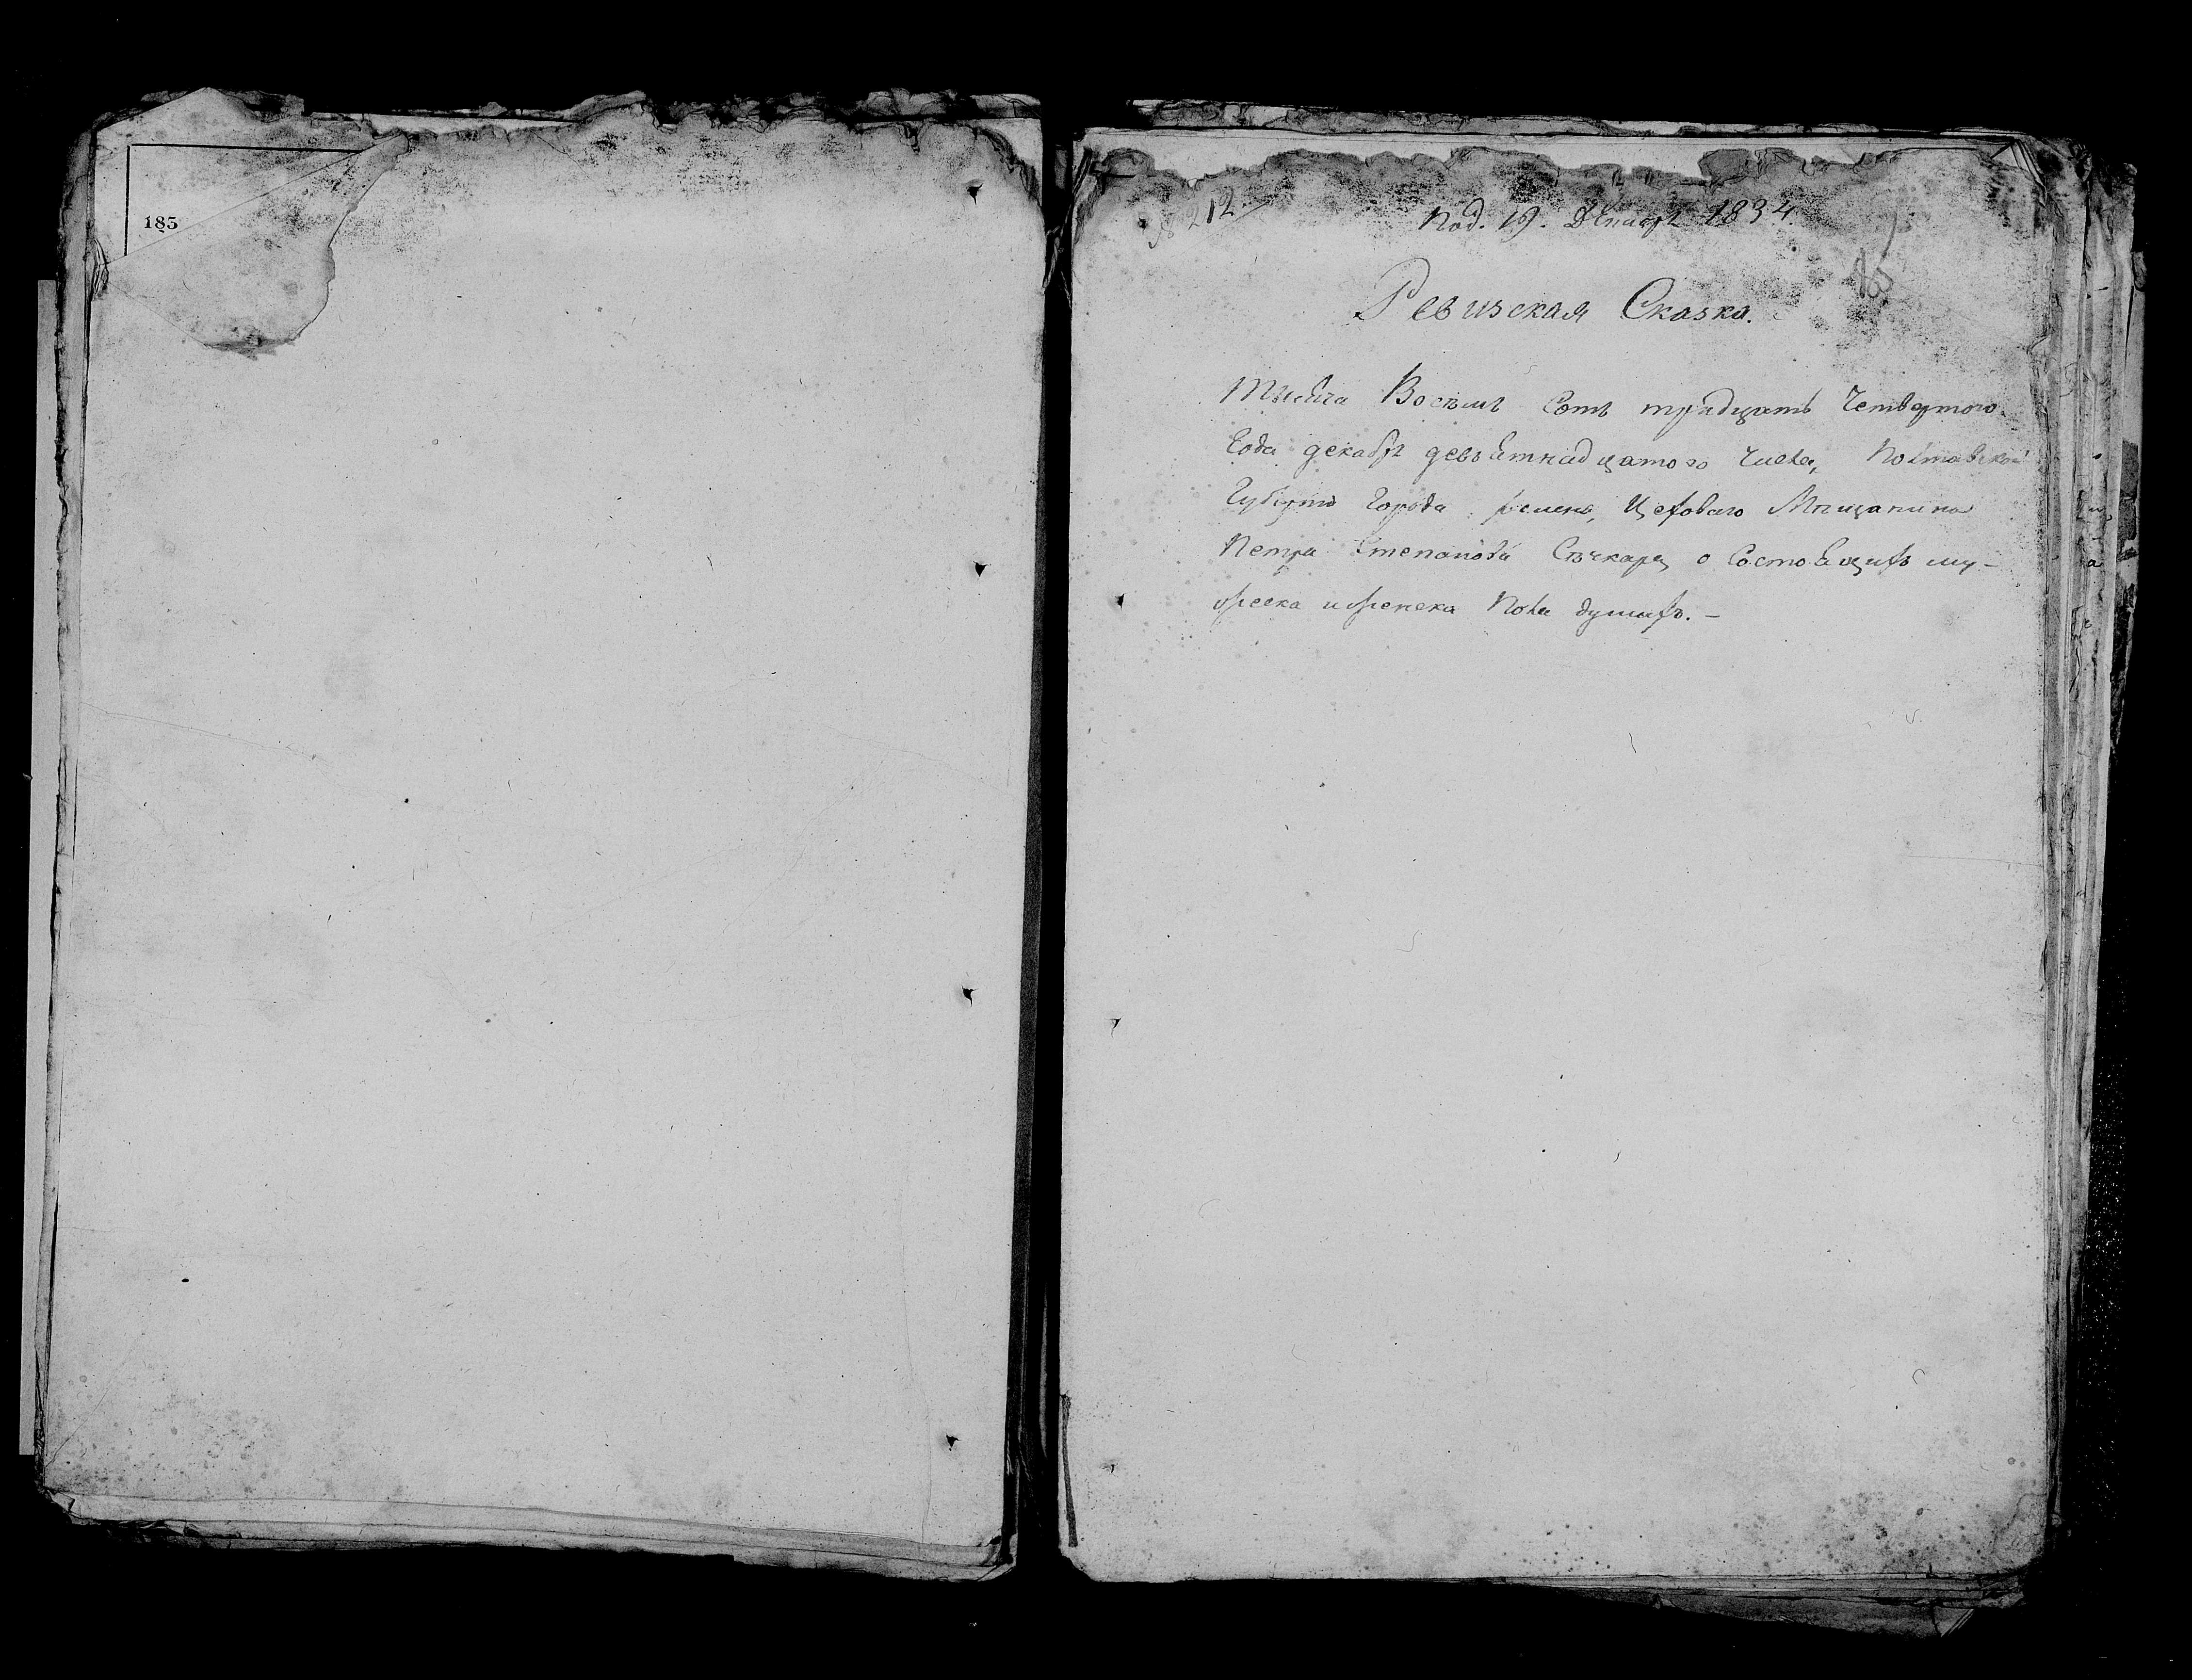 185
№ 212
Под. 19. Декабр 1834
Ревизская Сказка.
Тысеча Восемъ Сотъ тридцать Четвертого
Года декабр девъетнадцатого Числа, Полтавской
Губерни Города ромена, Цехового Мещанина
Петра Степанова Сѣчкарц о Состоещихъ му-
жеска и женска Пола душахъ. —